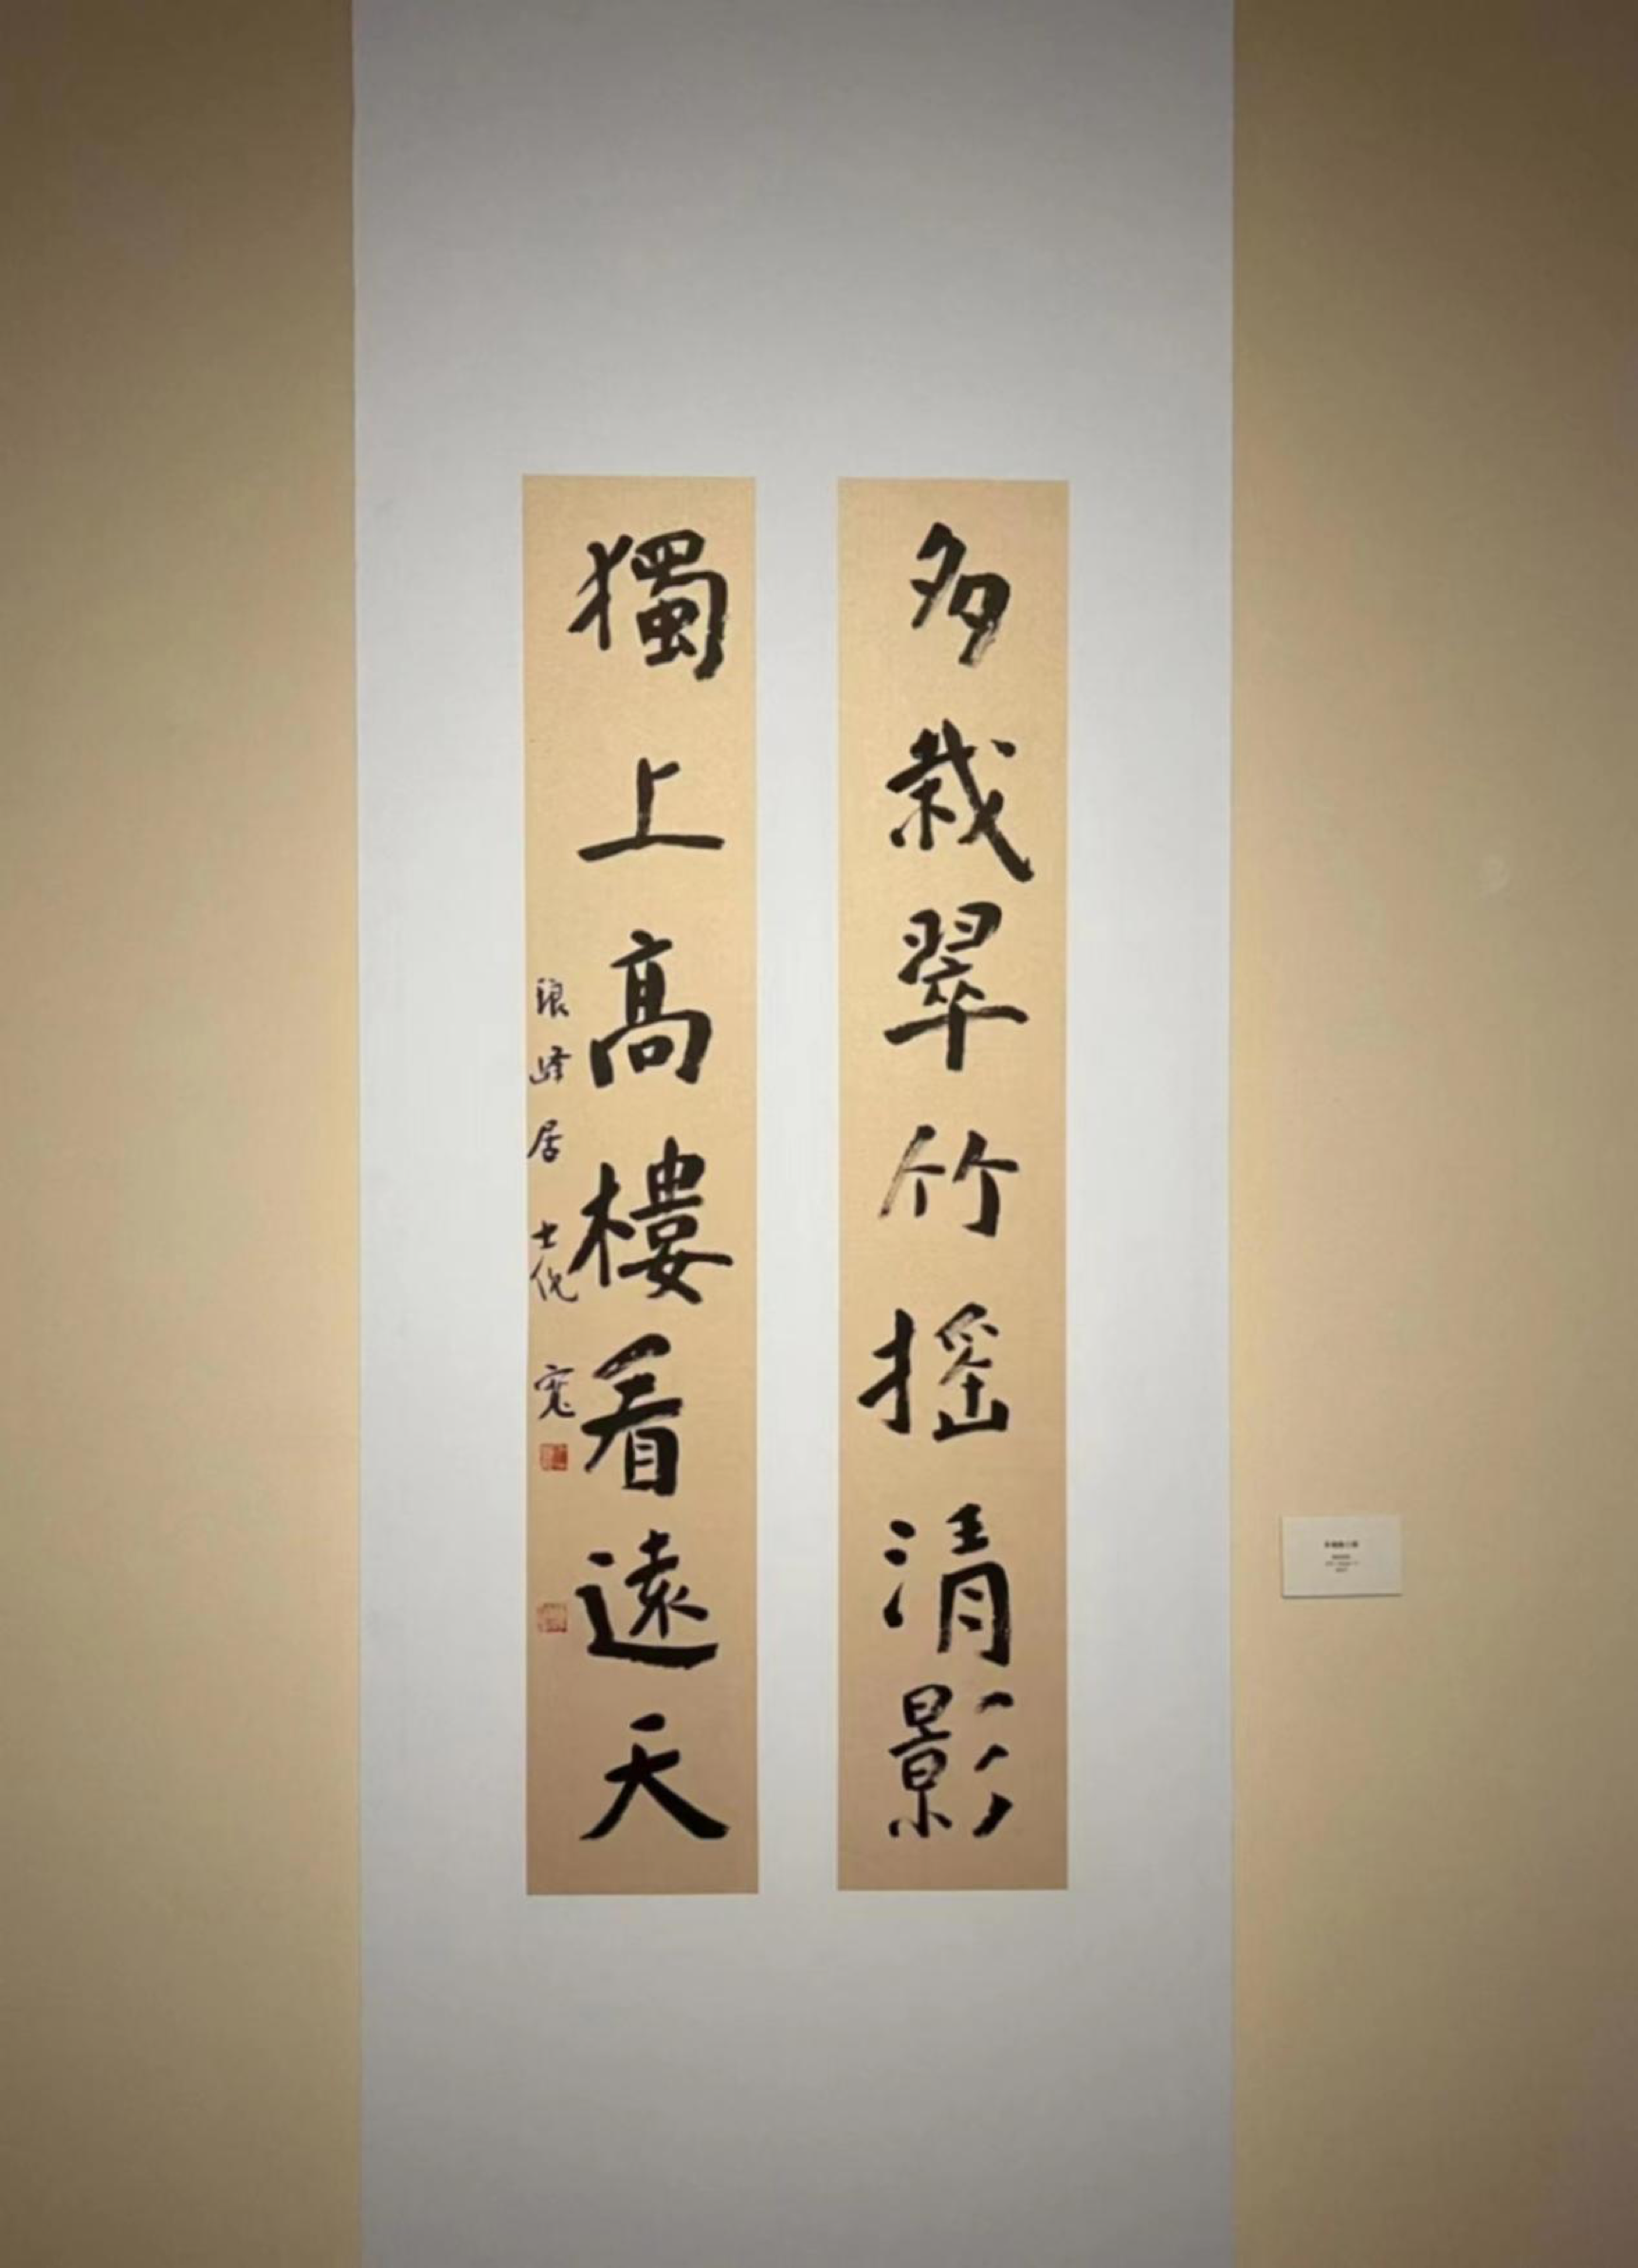 多栽翠竹搖清影
獨上高樓看遠天
琅峄居士倪寬